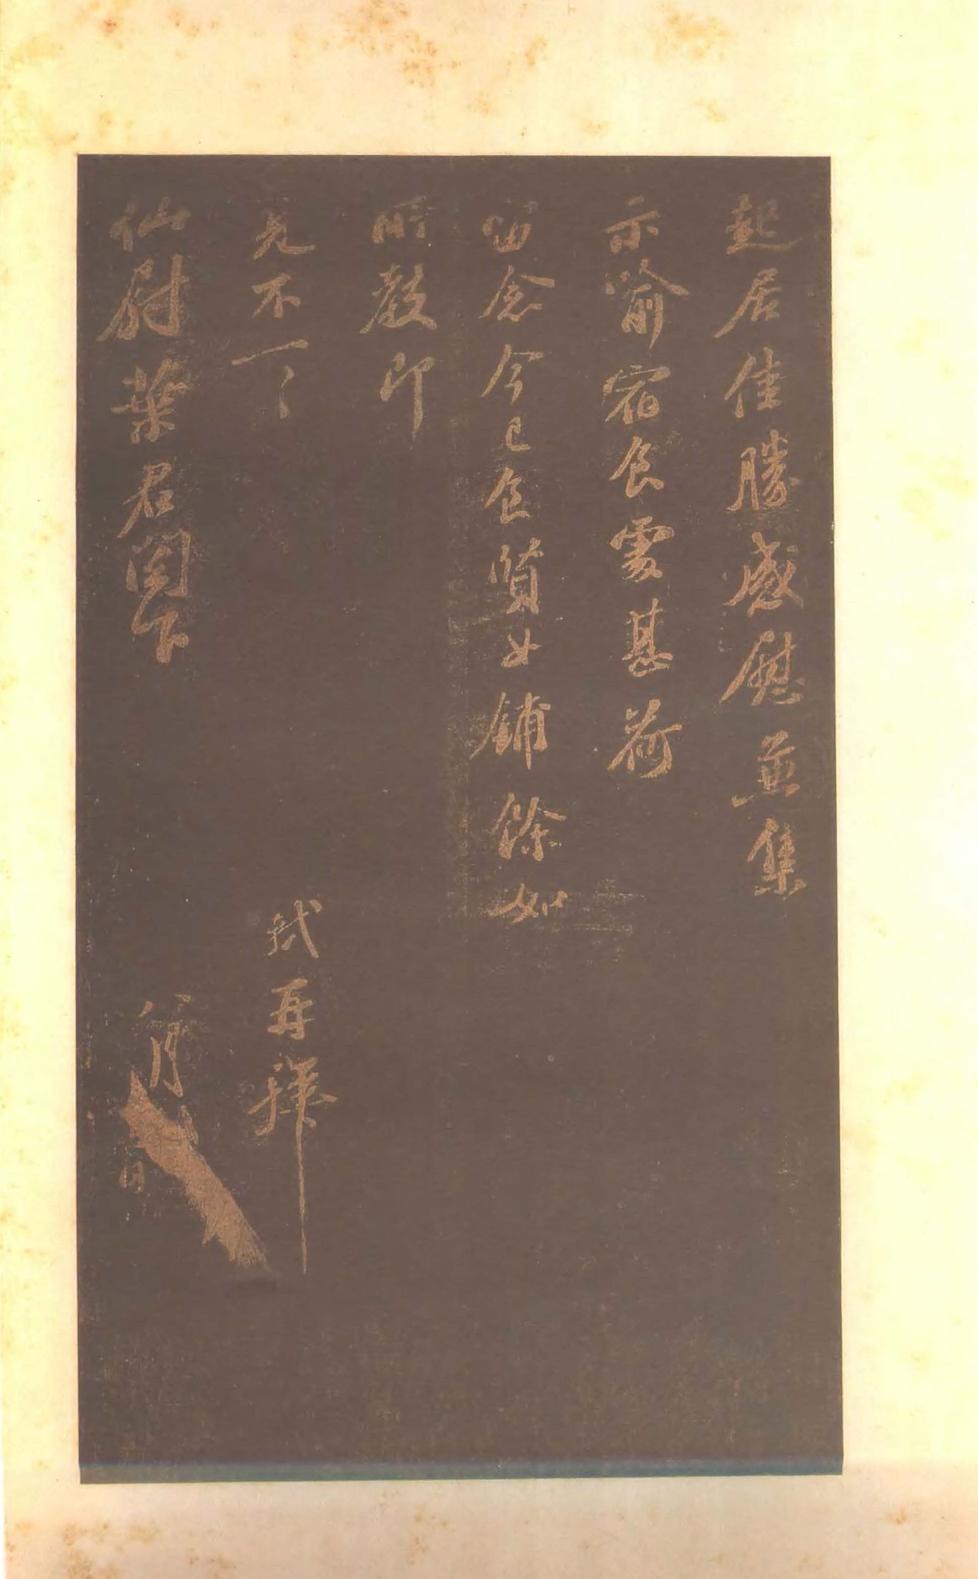 起居佳勝感慰並集
示喻宿食處甚荷
留念今已食質女鋪餘如
所教即
見不一一 軾再拜
仙尉葉君閣下 八月 日